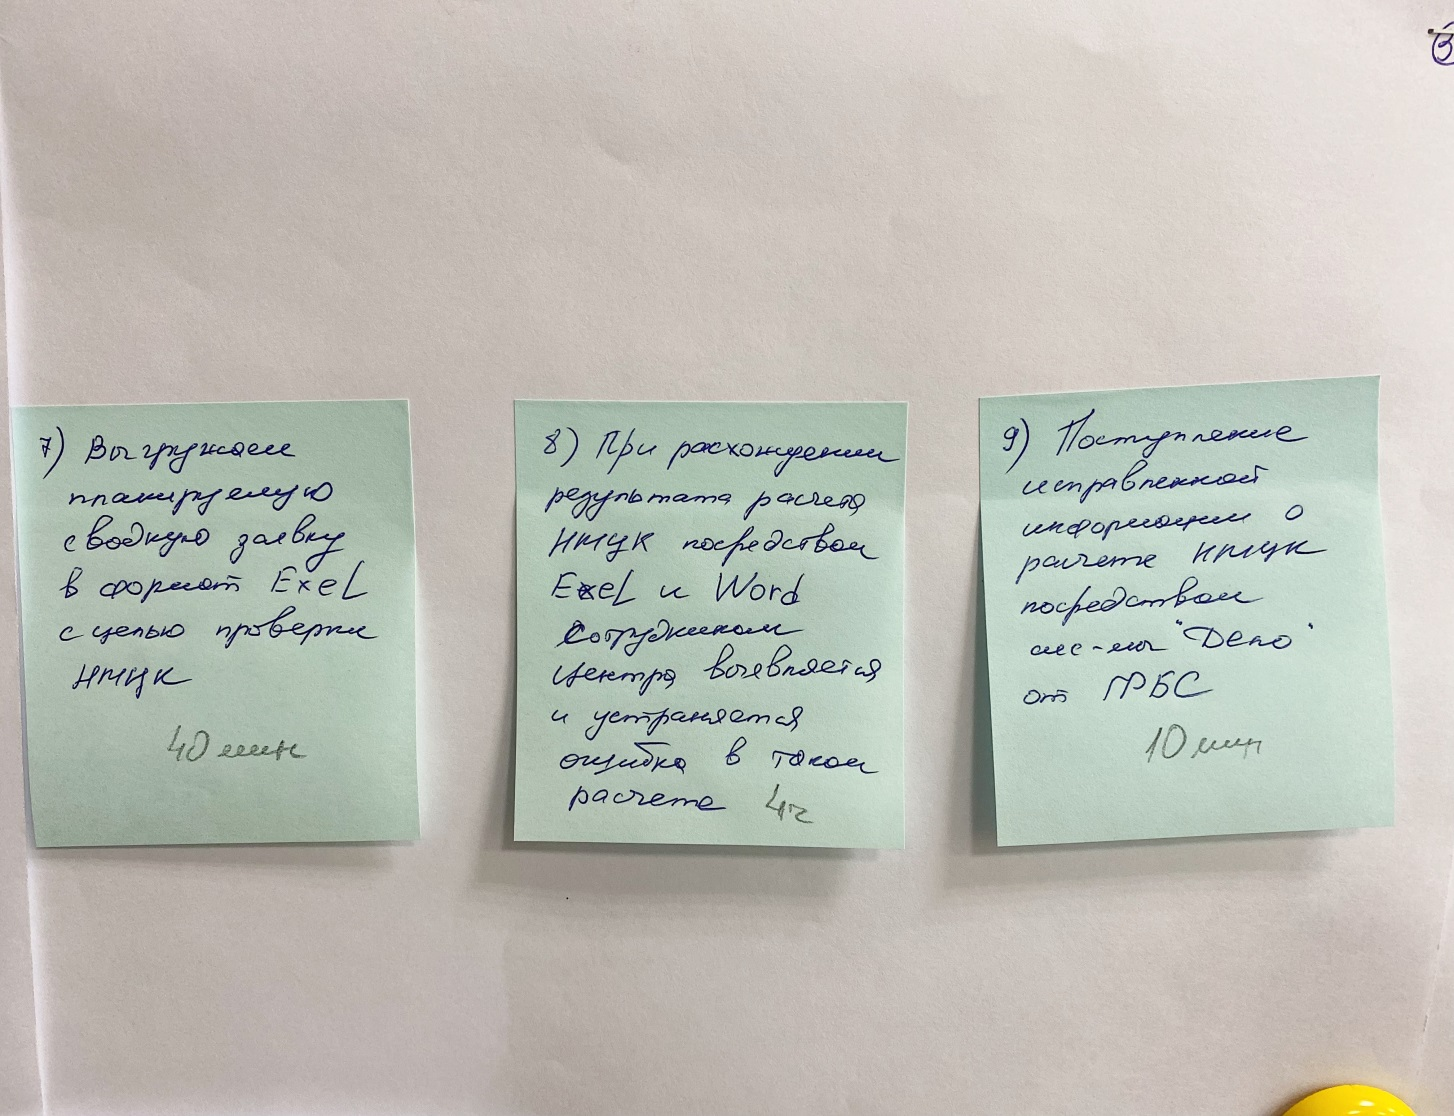 3
7) Выгружаем
планируемую
сводную заявку
в формат Exel
с целью проверки
НМЦК
40 мин
8) При расхождении
результата расчета
НМЦК посредством
Exel и Word
Сотрудником
Центра выявляется
и устраняется
ошибка в таком
расчете 4ч
9) Поступление
исправленной
информации о
расчете НМЦК
посредством
сис-мы "Дело"
от ГРБС
10 мин